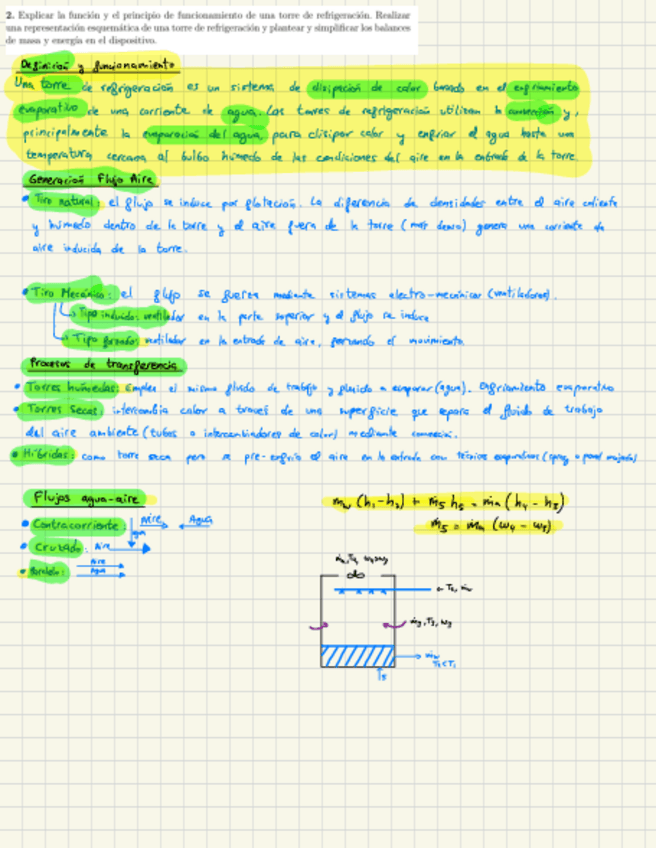 2. Explicar la función y el principio de funcionamiento de una torre de refrigeración. Realizar
una representación esquemática de una torre de refrigeración y plantear y simplificar los balances
de masa y energía en el dispositivo.
Definición y funcionamiento
Una torre de refrigeración es un sistema de disipación de calor basado en el enfriamiento
evaporativo de una corriente de agua. Las torres de refrigeración utilizan la convección y,
principalmente la evaporación del agua, para disipar calor y enfriar el agua hasta una
temperatura cercana al bulbo húmedo de las condiciones del aire en la entrada de la torre.
Generación Flujo Aire
• Tiro natural: el flujo se induce por flotación. La diferencia de densidades entre el aire caliente
y húmedo dentro de la torre y el aire fuera de la torre (mas denso) genera una corriente de
aire inducida de la torre.
• Tiro Mecánico: el flujo se fuerza mediante sistemas electro-mecánicos (ventiladores).
↳ Tipo inducido: ventilador en la parte superior y el flujo se induce
↳ Tipo forzado: ventilador en la entrada de aire, forzando el movimiento
Procesos de transferencia
• Torres húmedas: Emplea el mismo fluido de trabajo y fluido a evaporar (agua). Enfriamiento evaporativo
• Torres Secas: intercambia calor a traves de una superficie que separa el fluido de trabajo
del aire ambiente (tubos o intercambiadores de calor) mediante convección.
• Híbridas: como torre seca pero se pre-enfría el aire en la entrada con técnicas evaporativas (spray o panel mojado)
Flujos agua-aire
ṁw (h₁-h₂) + ṁ₅ h₅ = ṁa (h₄ - h₃)
ṁ₅ = ṁa (ω₄ - ω₃)
• Contracorriente: Aire → ← Agua
• Cruzado: Aire → Agua
• Paralelo: Aire → Agua →
← T₁, ṁw
T₂<T₁